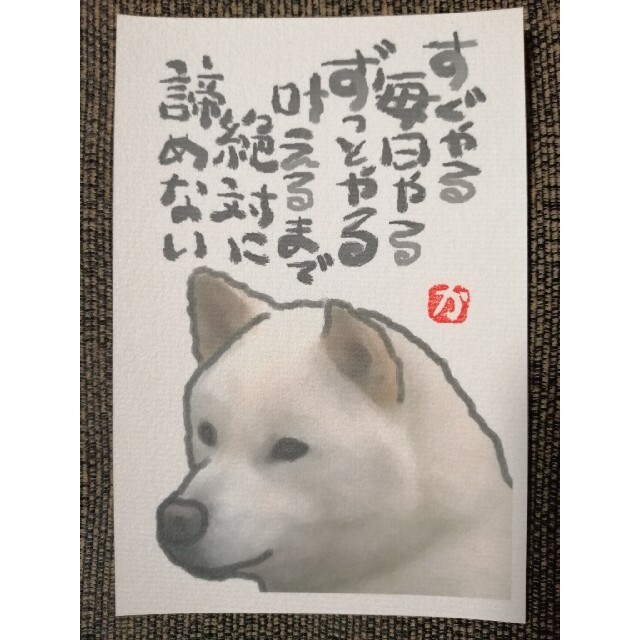 すぐやる
毎日やる
ずっとやる
叶えるまで
絶対に
諦めない
か